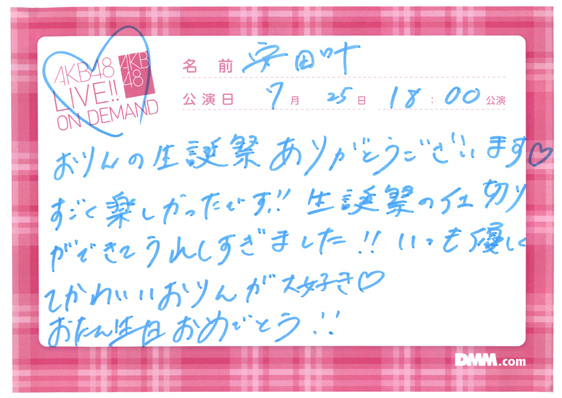 AKB48
LIVE!!
ON DEMAND
AKB
48
名前 安田叶
公演日 7月 25日 18:00公演
おりんの生誕祭ありがとうございます♡
すごく楽しかったです!! 生誕祭の仕切り
ができてうれしすぎました!! いつも優しく
てかわいいおりんが大好き♡
おたん生日おめでとう!!
DMM.com